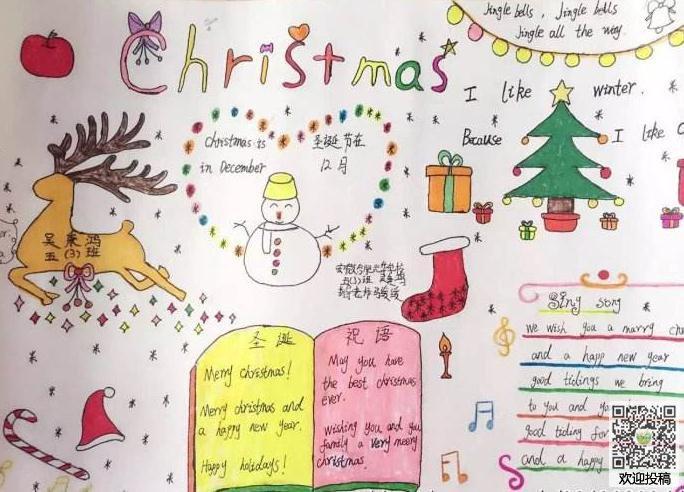 Jingle bells, Jingle bells
Jingle all the way.
Christmas
I like winter.
Because
I like
Christmas is
in December
圣诞节在
12月
五(3)班
圣诞
Merry Christmas!
Merry christmas and
a happy new year.
Happy holidays!
祝语
May you have
the best christmas
ever.
Wishing you and you
family a very meery
christmas.
Sing song
we wish you a marry
and a happ new year
good tidings we bring
to you and
good tiding for
and a happy
欢迎投稿